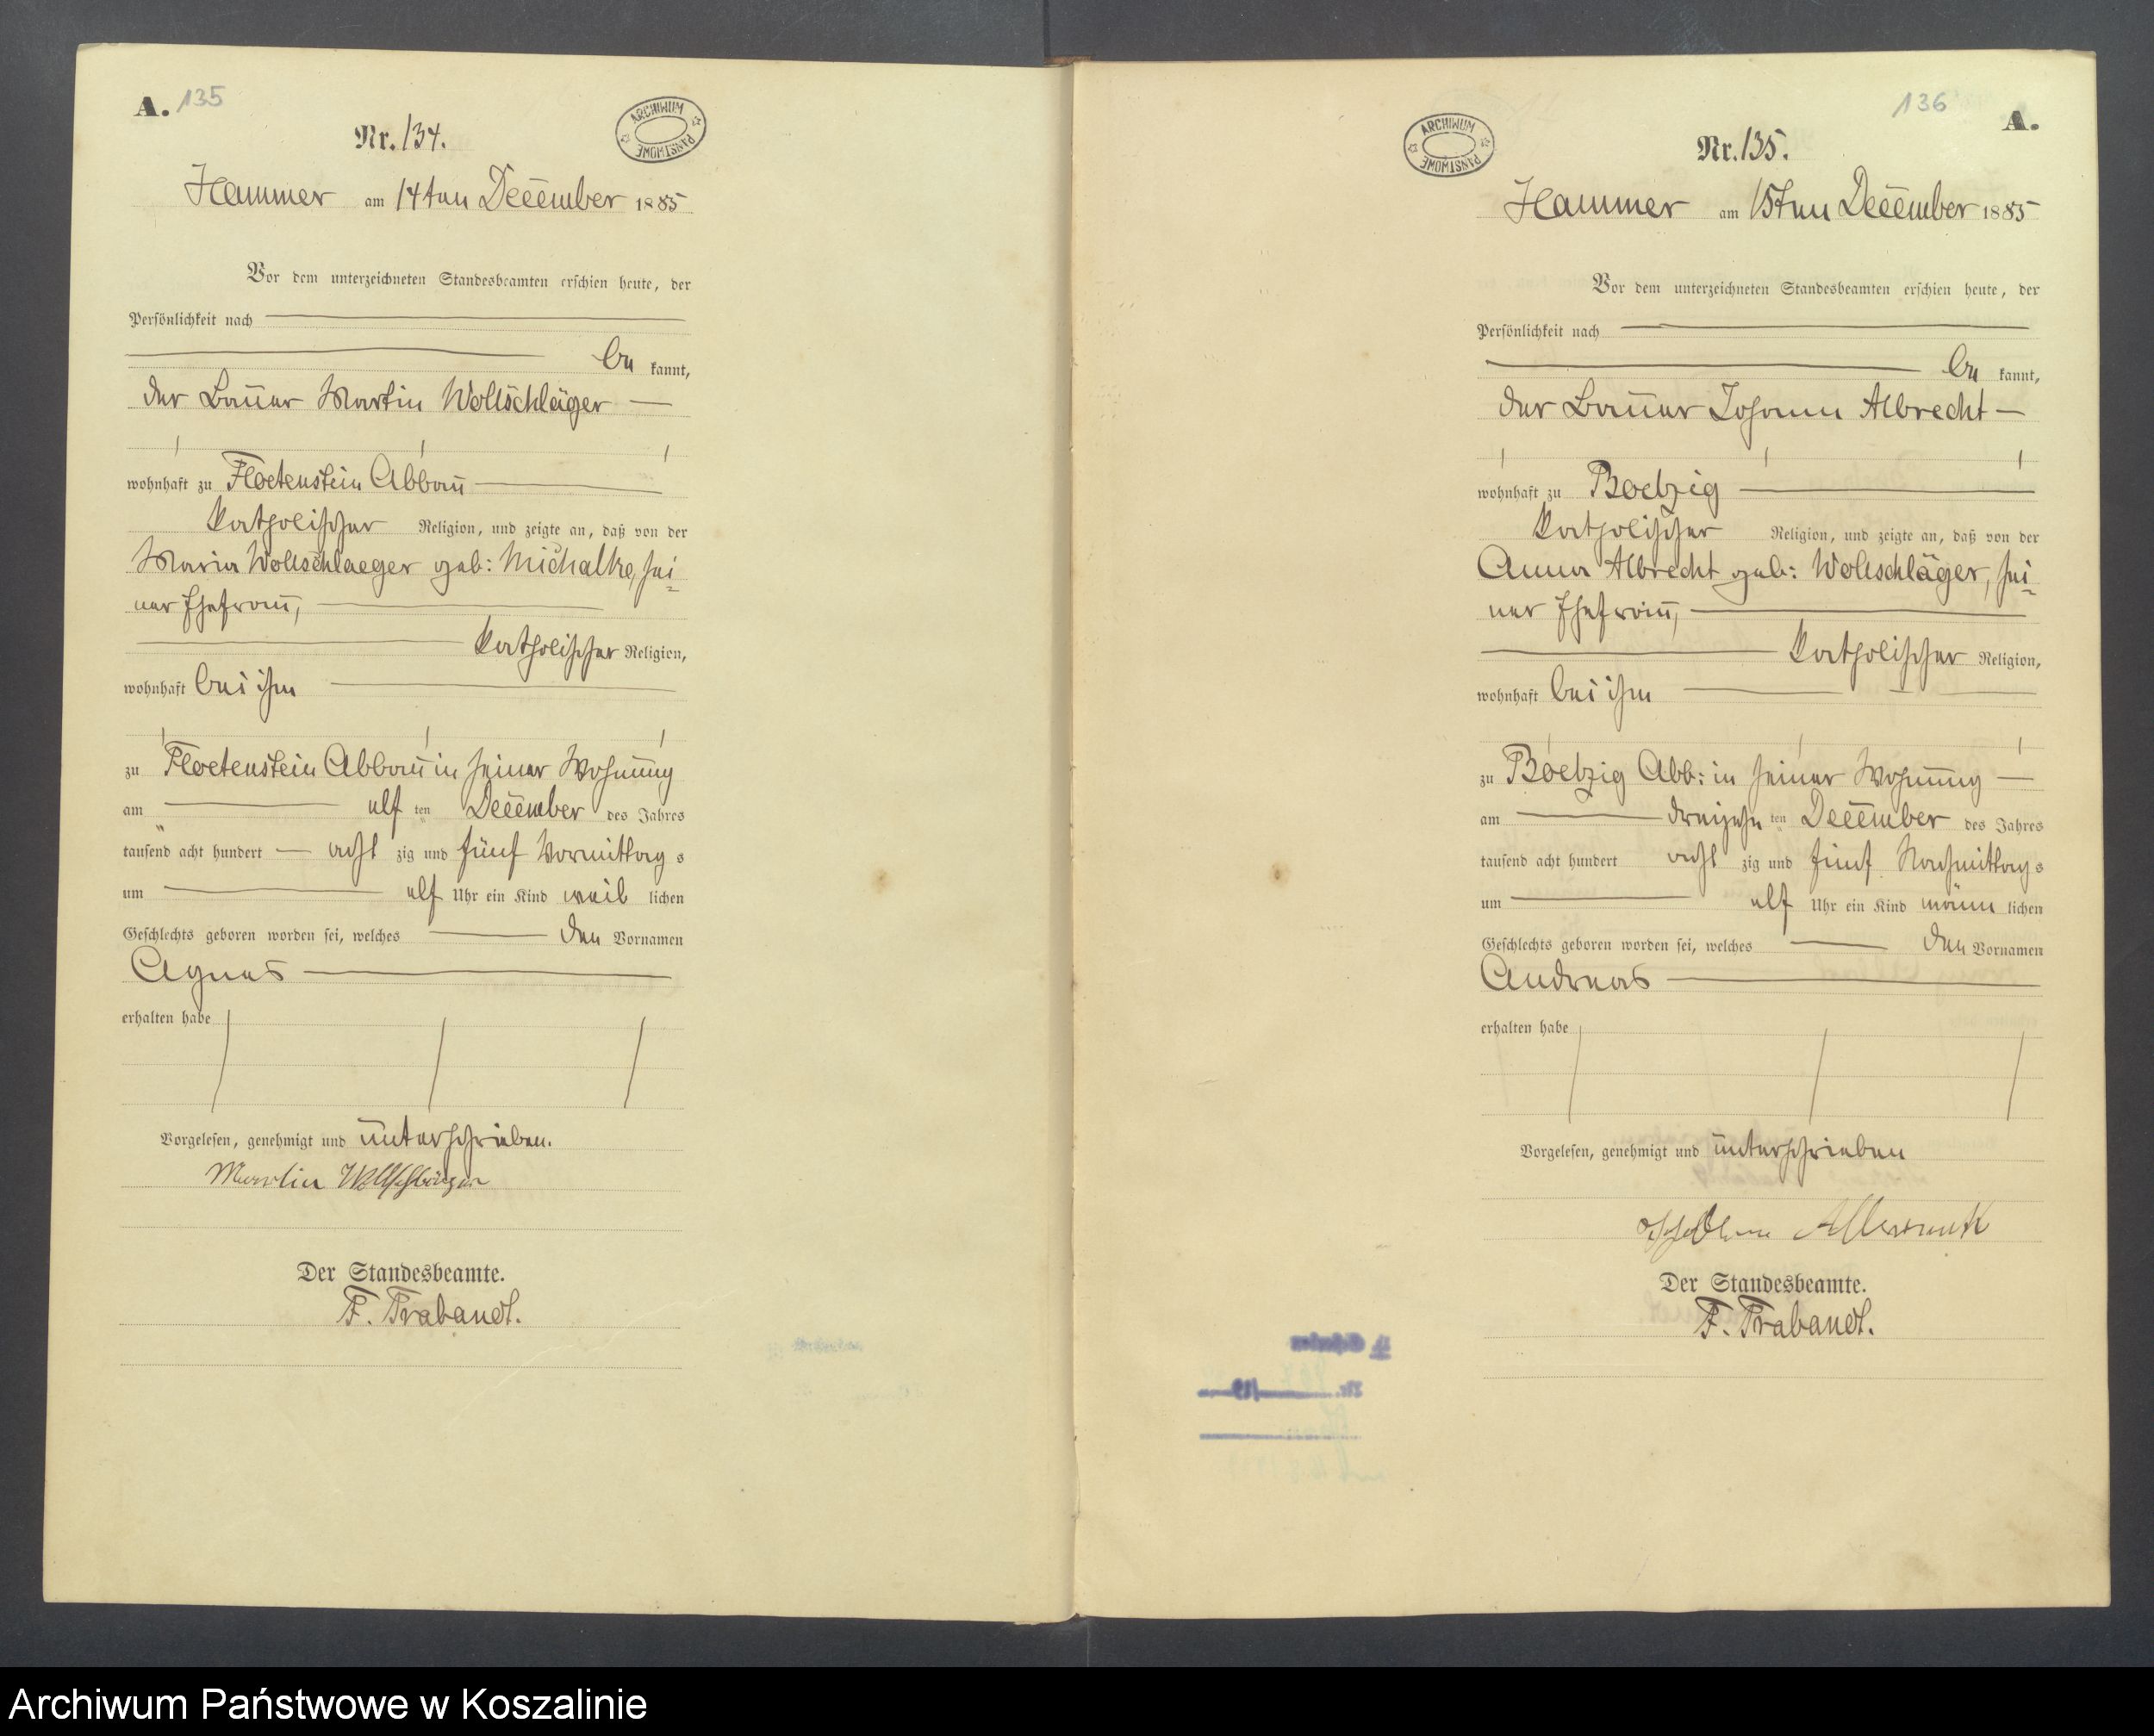 A. 135
ARCHIWUM PAŃSTWOWE
Nr. 134.
Hammer am 14ten December 1885
Vor dem unterzeichneten Standesbeamten erschien heute, der
Persönlichkeit nach
be kannt,
der Bauer Martin Wollschläger
wohnhaft zu Floetenstein Abbau
katholischer Religion, und zeigte an, daß von der
Maria Wollschlaeger geb: Michalke, sei=
ner Ehefrau,
katholischer Religion,
wohnhaft bei ihm
zu Floetenstein Abbau in seiner Wohnung
am elf ten December des Jahres
tausend acht hundert acht zig und fünf Vormittag s
um elf Uhr ein Kind weib lichen
Geschlechts geboren worden sei, welches den Vornamen
Agnes
erhalten habe
Vorgelesen, genehmigt und unterschrieben.
Martin Wollschläger
Der Standesbeamte.
F. Trabandt.
136 A.
ARCHIWUM PAŃSTWOWE
Nr. 135.
Hammer am 15ten December 1885
Vor dem unterzeichneten Standesbeamten erschien heute, der
Persönlichkeit nach
be kannt,
der Bauer Johann Albrecht
wohnhaft zu Boelzig
katholischer Religion, und zeigte an, daß von der
Anna Albrecht geb: Wollschläger, sei=
ner Ehefrau,
katholischer Religion,
wohnhaft bei ihm
zu Boelzig Abb: in seiner Wohnung
am dreizehn ten December des Jahres
tausend acht hundert acht zig und fünf Nachmittag s
um elf Uhr ein Kind männ lichen
Geschlechts geboren worden sei, welches den Vornamen
Andreas
erhalten habe
Vorgelesen, genehmigt und unterschrieben
Der Standesbeamte.
F. Trabandt.
Archiwum Państwowe w Koszalinie